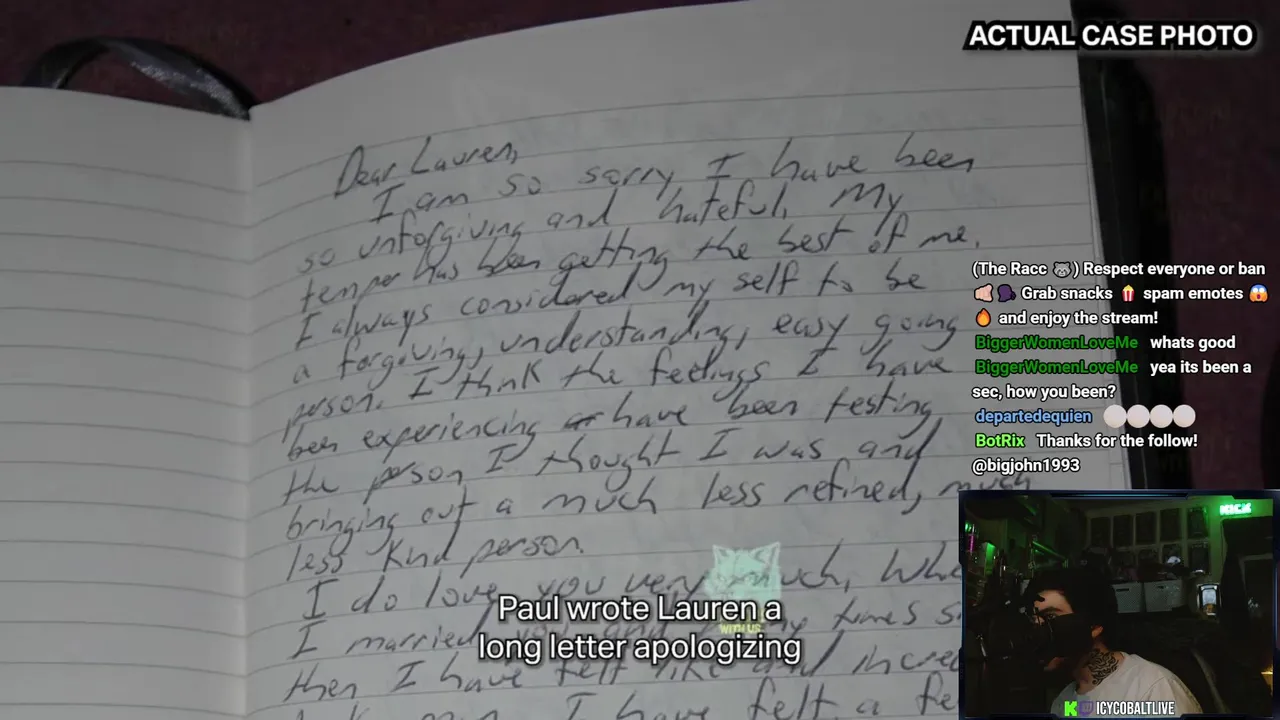 ACTUAL CASE PHOTO
Dear Lauren,
I am so sorry I have been
so unforgiving and hateful. My
temper has been getting the best of me.
I always considered my self to be
a forgiving, understanding, easy going
person. I think the feelings I have
been experiencing have been testing
the person I thought I was and
bringing out a much less refined, much
less kind person.
I do love you very much,
I married you and my times
then I have felt like and
I have felt a
Paul wrote Lauren a
long letter apologizing
WITH US
(The Racc 🦝) Respect everyone or ban
Grab snacks 🍿 spam emotes 😱
🔥 and enjoy the stream!
BiggerWomenLoveMe whats good
BiggerWomenLoveMe yea its been a
sec, how you been?
departedequien
BotRix Thanks for the follow!
@bigjohn1993
KICK
K ICYCOBALTLIVE